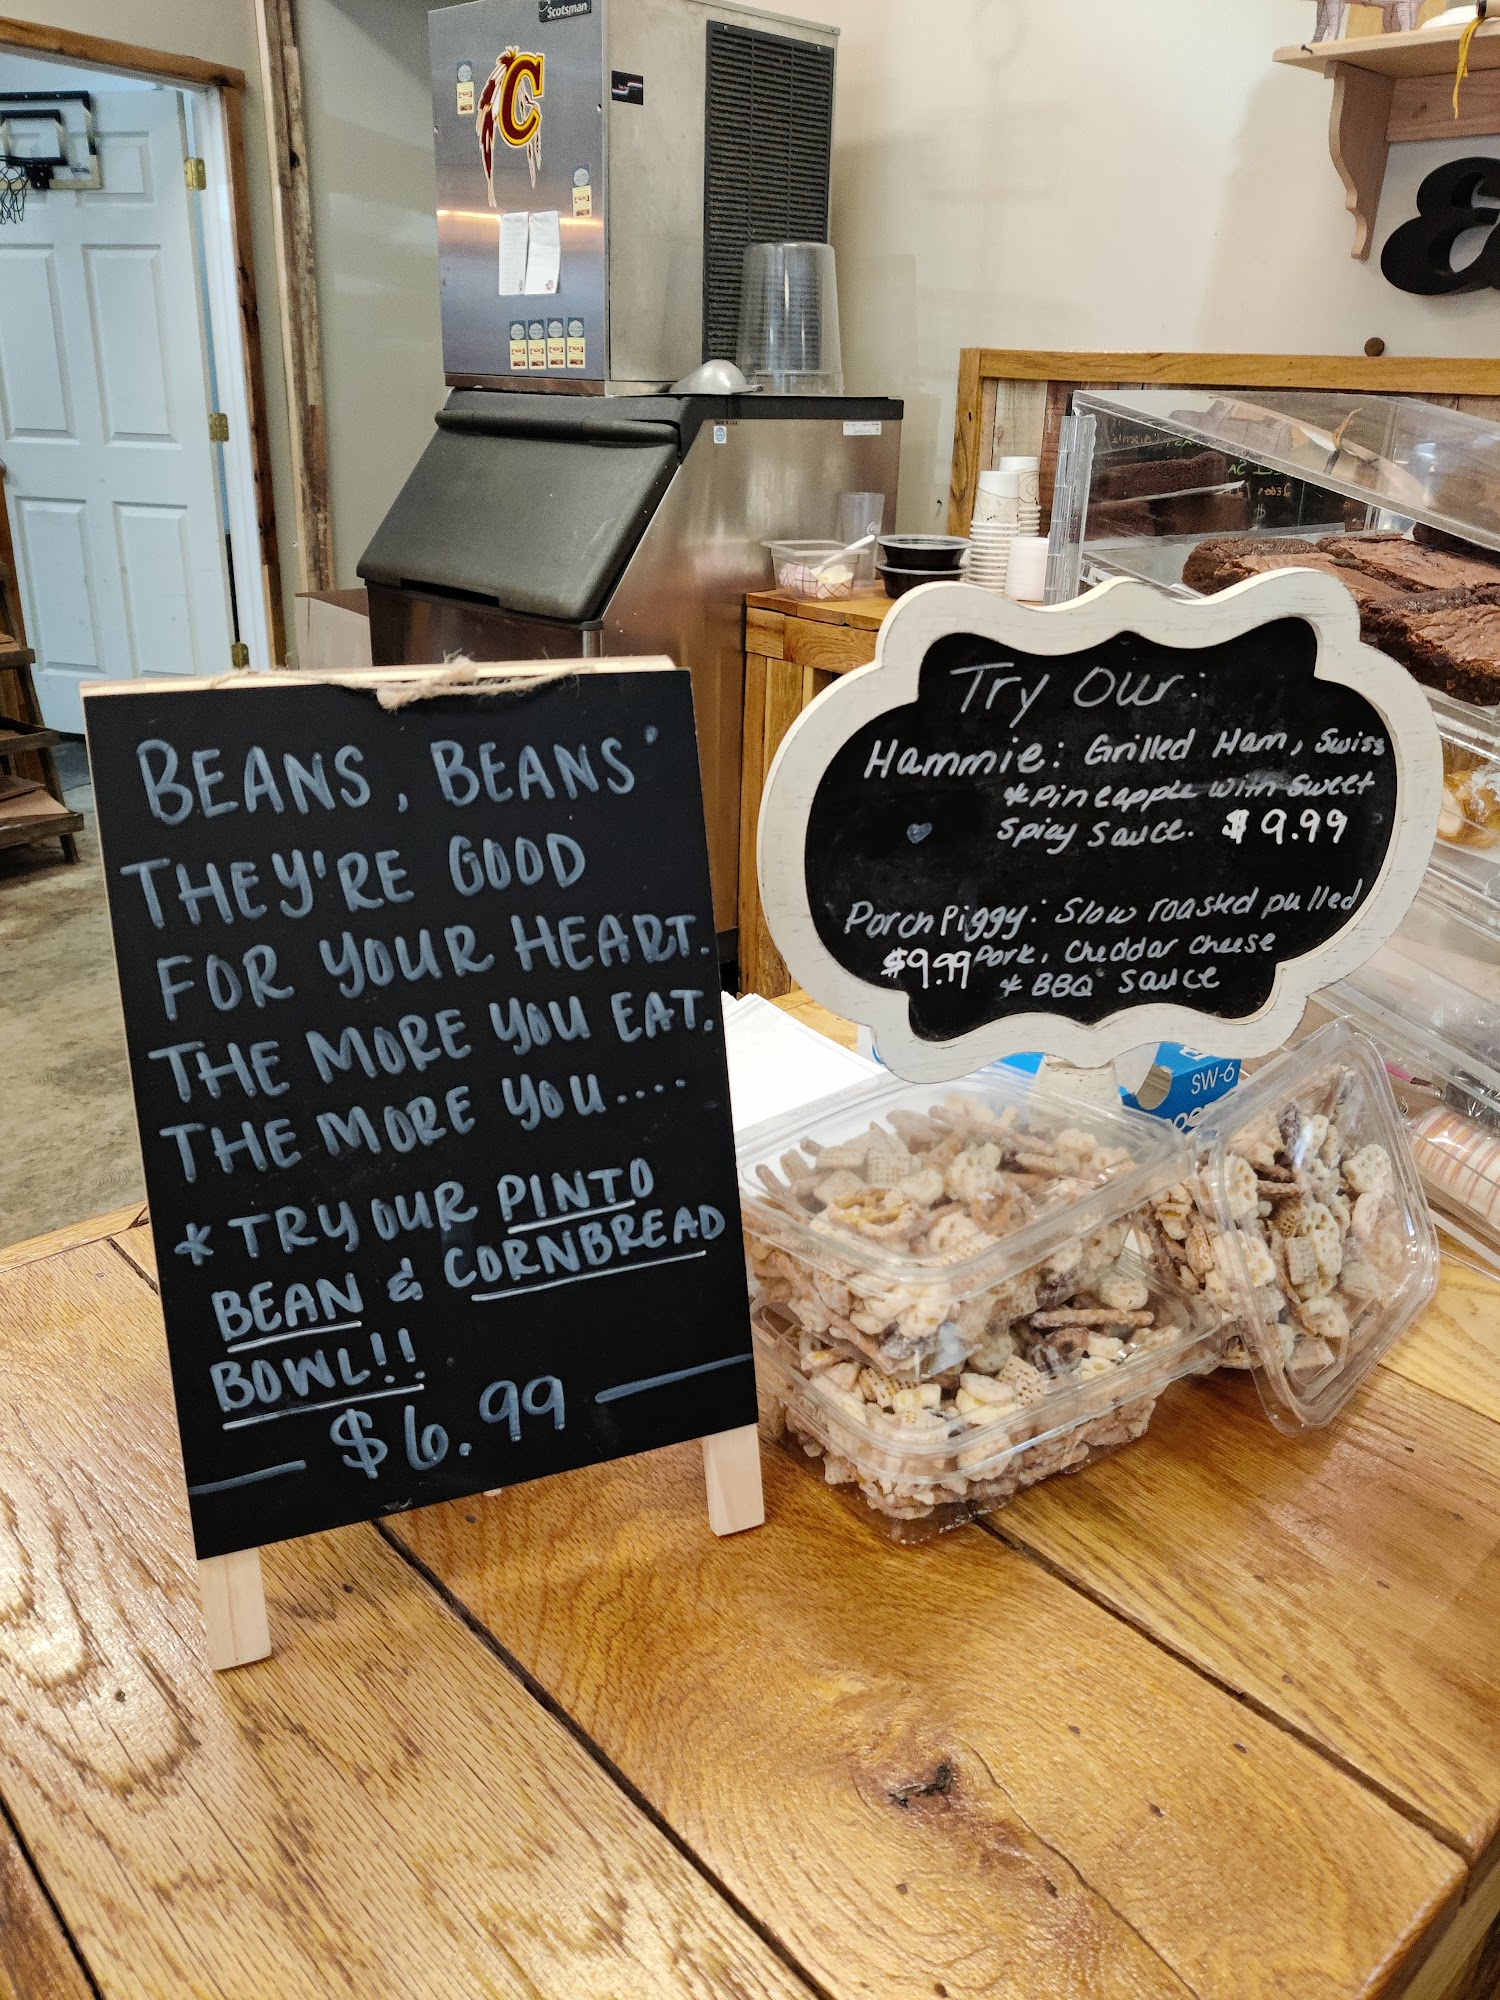 Scotsman
C
BEANS, BEANS'
THEY'RE GOOD
FOR YOUR HEART.
THE MORE YOU EAT.
THE MORE YOU....
* TRY OUR PINTO
BEAN & CORNBREAD
BOWL!!
$6.99
Try Our:
Hammie: Grilled Ham, Swiss
* Pineapple with Sweet
Spicy Sauce. $9.99
Porch Piggy: Slow roasted pulled
$9.99 Pork, Cheddar Cheese
* BBQ Sauce
SW-6
&